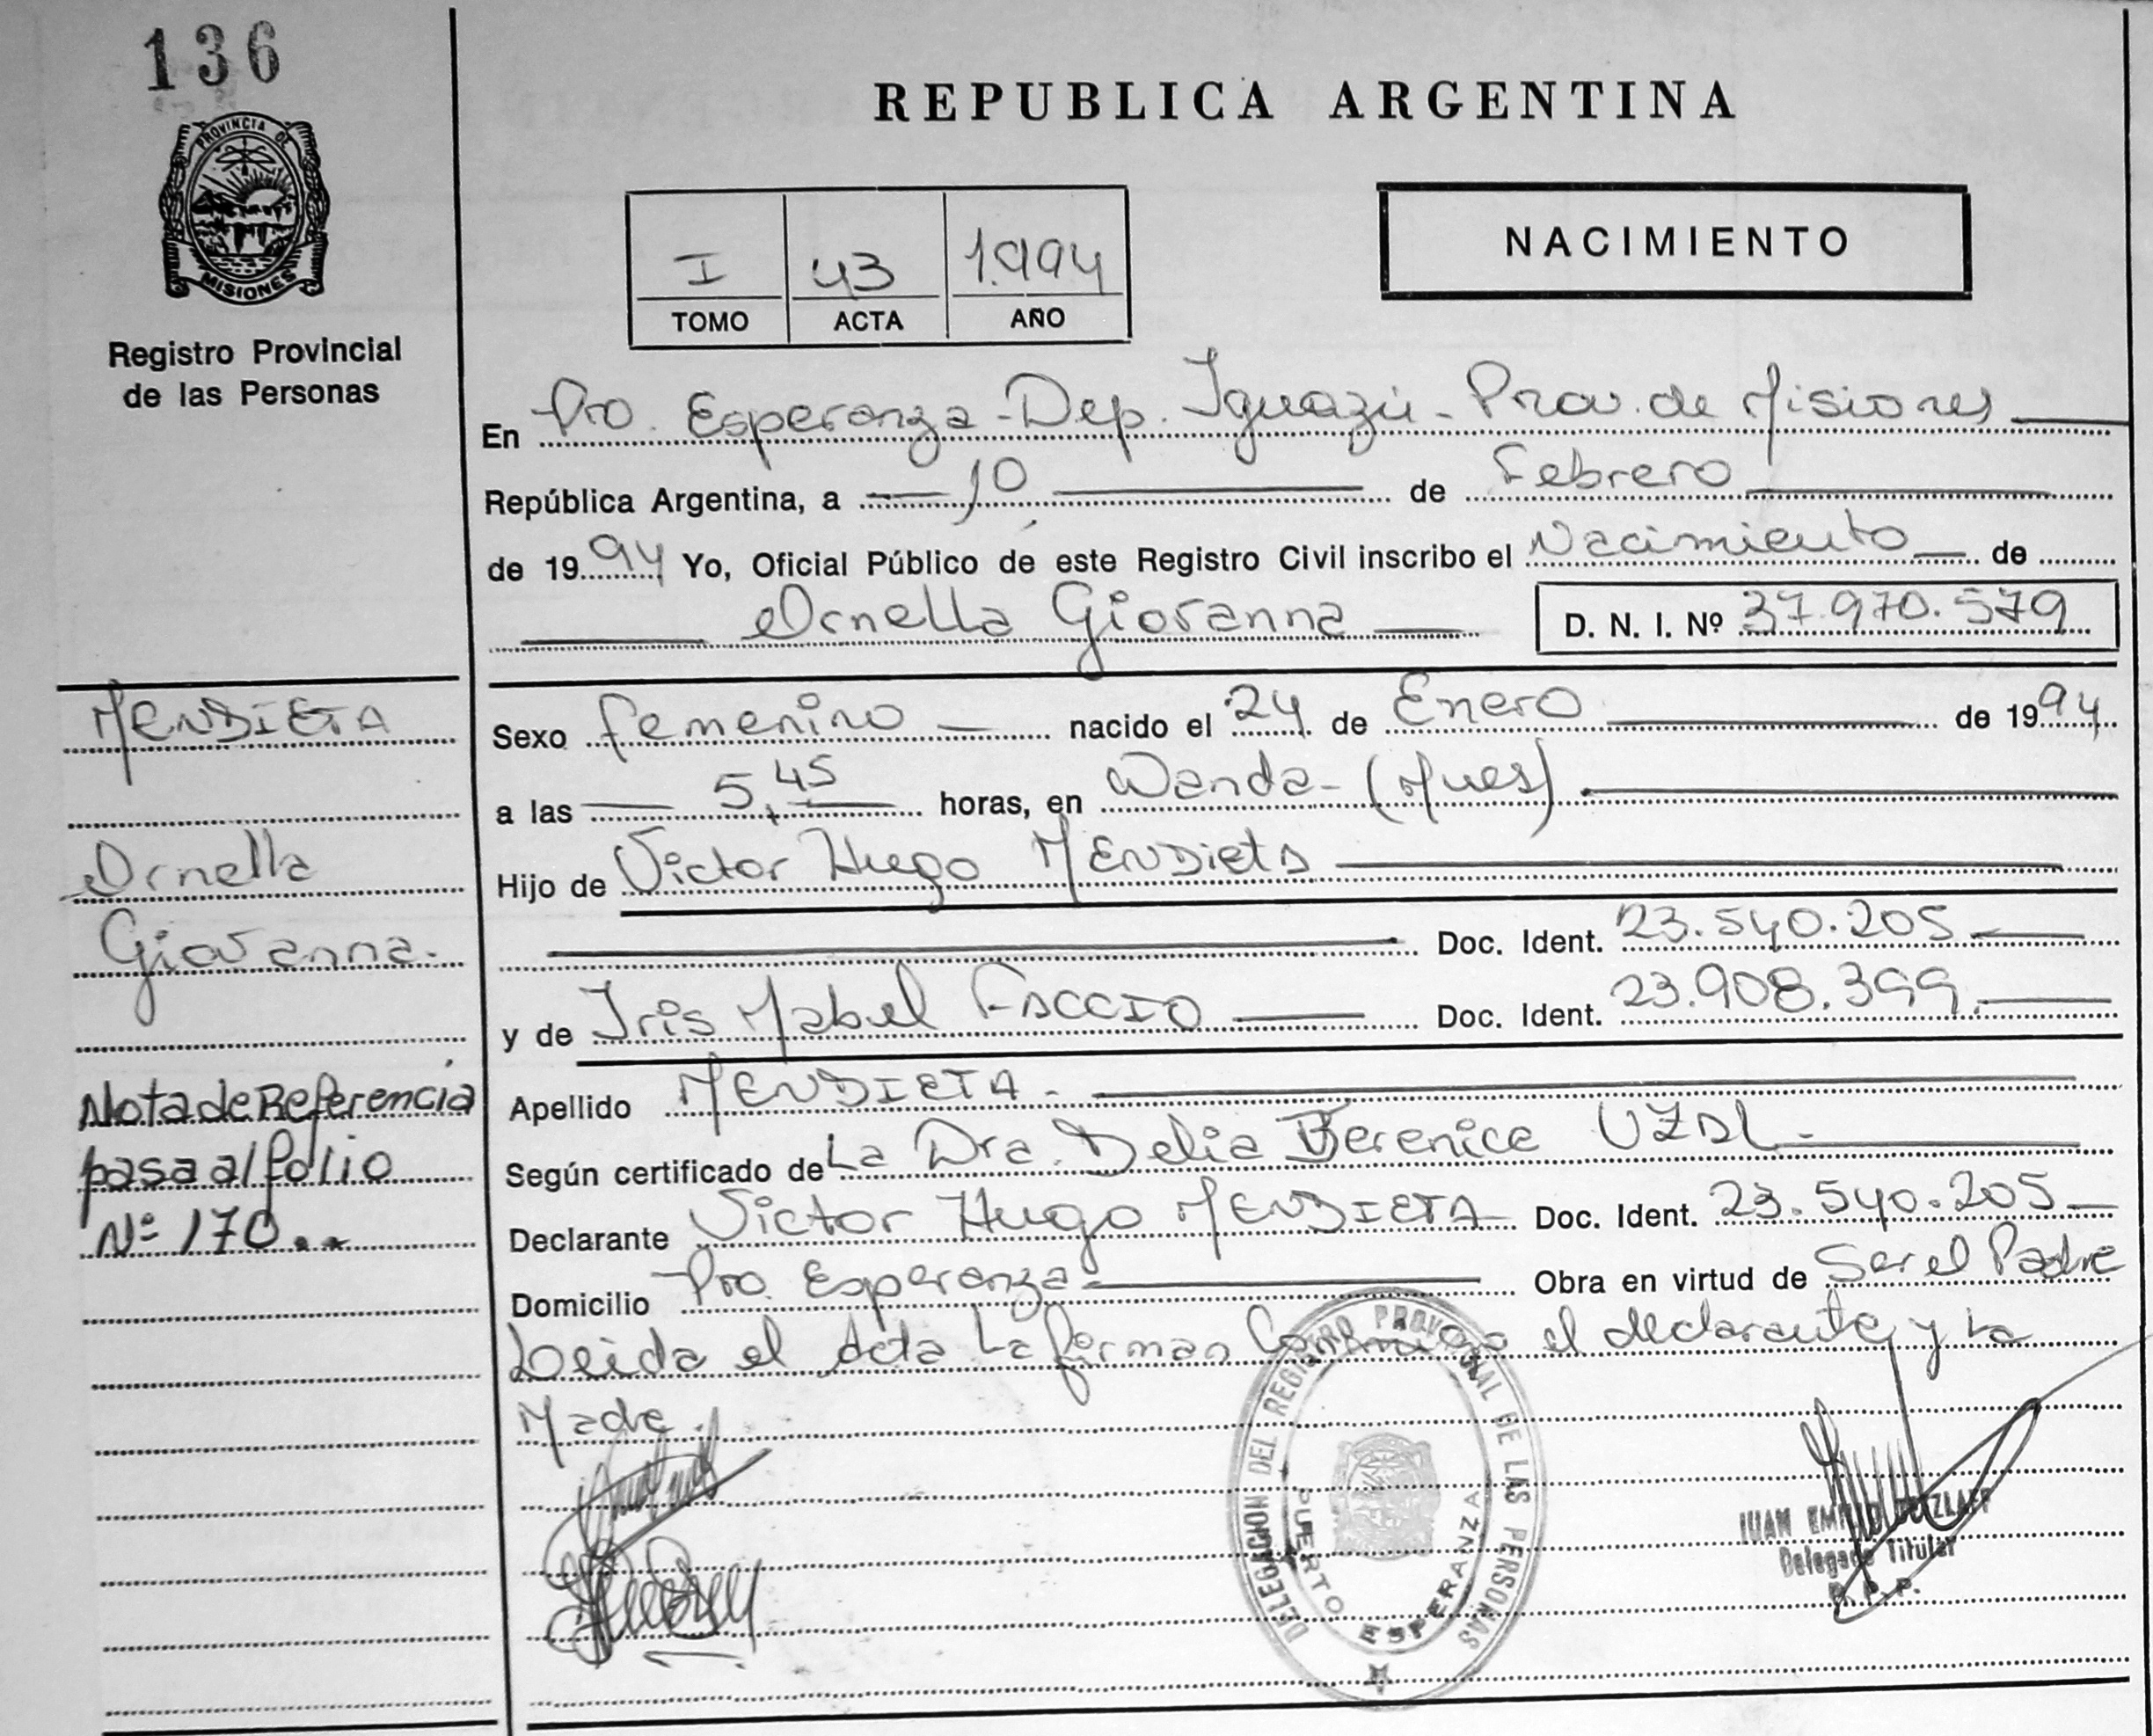 136
PROVINCIA DE
MISIONES
Registro Provincial
de las Personas
REPUBLICA ARGENTINA
I 43 1.994
TOMO ACTA AÑO
NACIMIENTO
En Pto. Esperanza - Dep. Iguazú - Prov. de Misiones
República Argentina, a 10 de Febrero
de 1994 Yo, Oficial Público de este Registro Civil inscribo el Nacimiento de
Ornella Giovanna D. N. I. Nº 37.970.579
MENDIETA
Ornella
Giovanna.
Nota de Referencia
pasa al folio
Nº 170..
Sexo femenino nacido el 24 de Enero de 1994
a las 5,45 horas, en Wanda - (Mnes)
Hijo de Victor Hugo MENDIETA
Doc. Ident. 23.540.205
y de Iris Mabel FACCIO Doc. Ident. 23.908.399
Apellido MENDIETA -
Según certificado de La Dra. Delia Berenice UZAL -
Declarante Victor Hugo MENDIETA Doc. Ident. 23.540.205
Domicilio Pto. Esperanza Obra en virtud de Ser el Padre
Leida el Acta La firman Conmigo el declarante y La
Madre.
DELEGACION DEL REGISTRO PROVINCIAL DE LAS PERSONAS
PUERTO ESPERANZA
JUAN EMILIO
Delegado Titular
R. P. P.